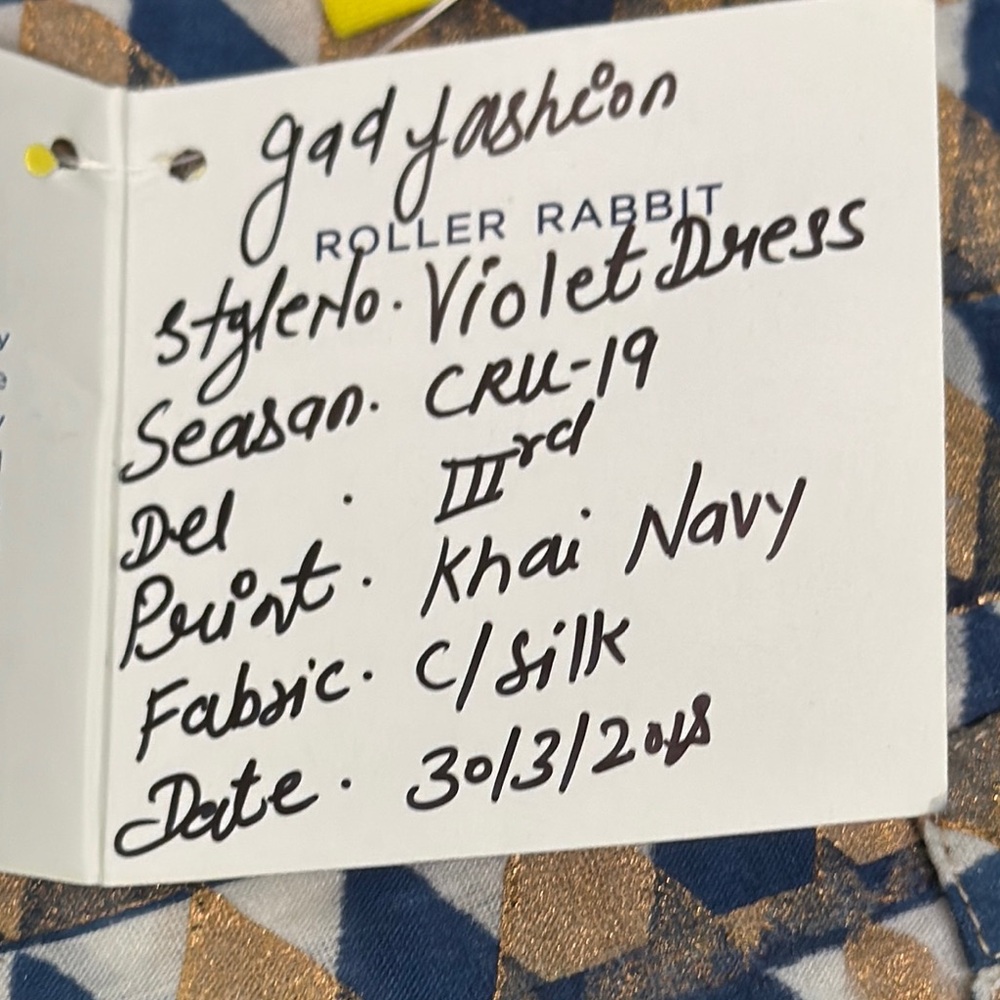 gad fashion
ROLLER RABBIT
Style No. Violet Dress
Seasan. CRU-19
Del . IIIrd
Print. Khai Navy
Fabric. C/Silk
Date. 30/3/2018